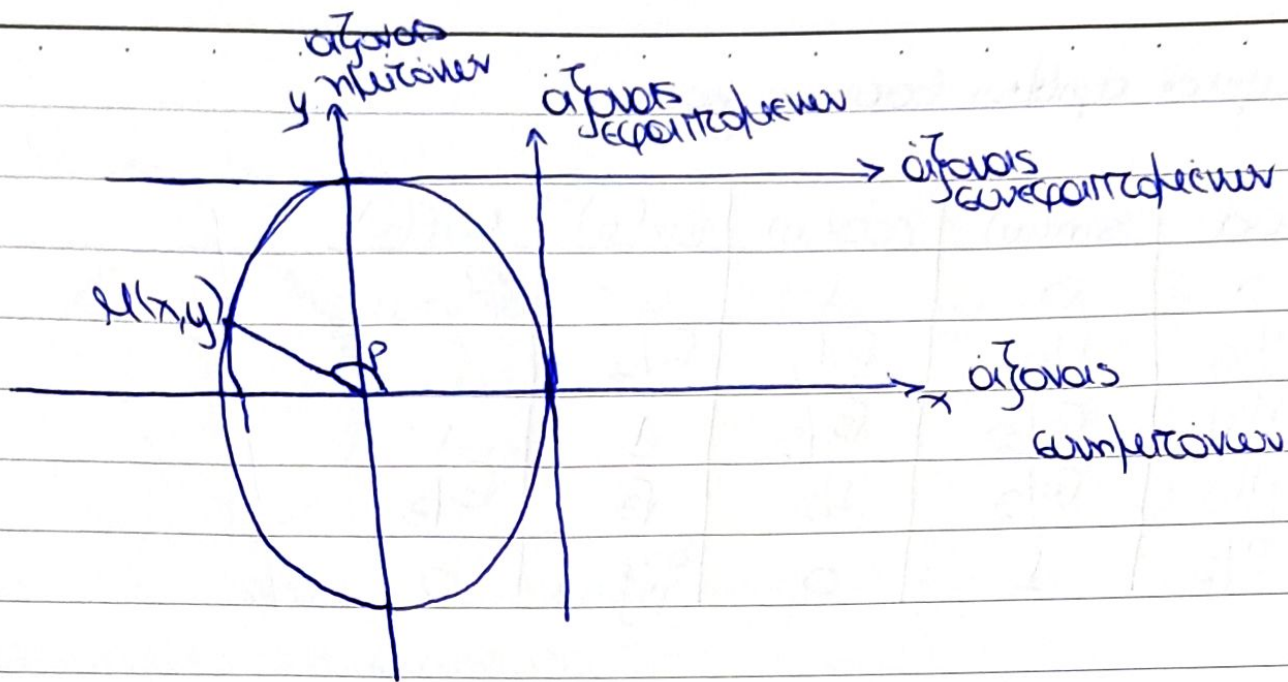 άξονας
ημιτόνων
y
άξονας
εφαπτομένων
άξονας
συνεφαπτομένων
M(x,y)
ρ
x
άξονας
συνημιτόνων